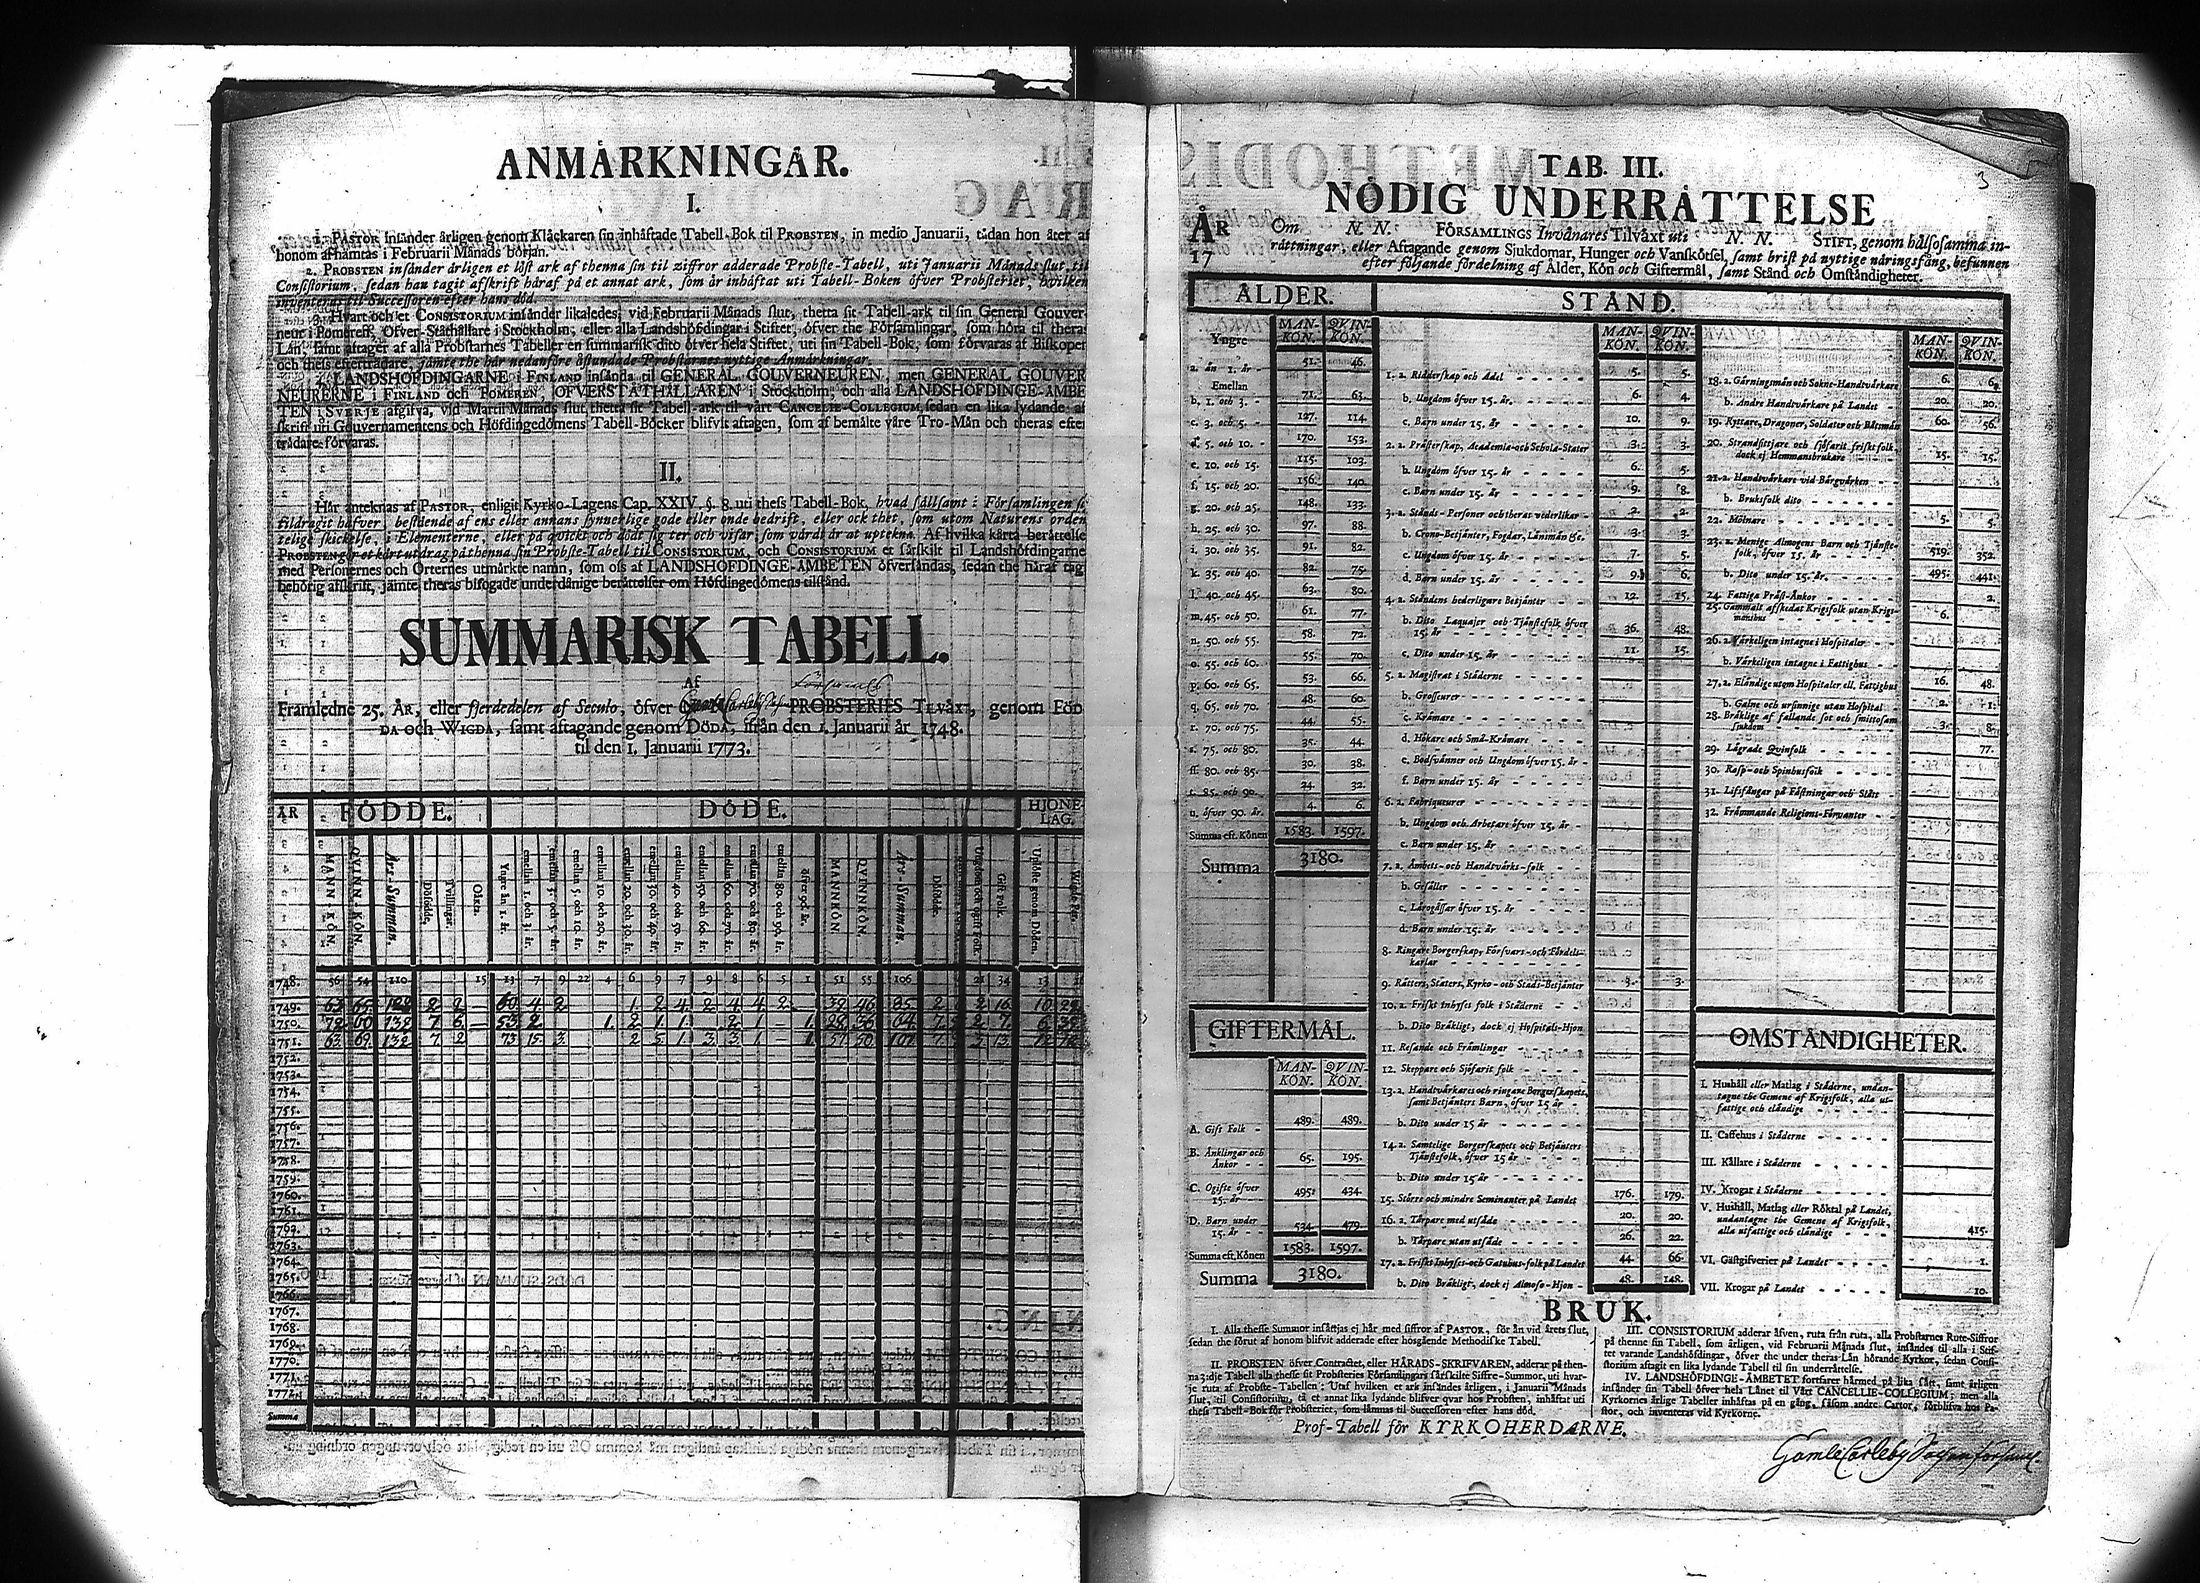 ANMÄRKNINGAR.
I.
1. PASTOR insänder årligen genom Klåckaren sin inhäftade Tabell-Bok til PROBSTEN, in medio Januarii, tådan hon åter af
honom afhämtas i Februarii Månads början.
2. PROBSTEN insänder årligen et löst ark af thenna sin til ziffror adderade Probste-Tabell, uti Januarii Månads slut, til
Consistorium, sedan han tagit afskrift häraf på et annat ark, som är inhäftat uti Tabell-Boken öfver Probsterier, hvilken
inventeras til Successoren efter hans död.
3. Hvart och et CONSISTORIUM insänder likaledes, vid Februarii Månads slut, thetta sit Tabell-ark til sin General Gouver-
neur i Pomeren, Öfver-Ståthållare i Stockholm, eller alla Landshöfdingar i Stiftet, öfver the Församlingar, som höra til theras
Län, samt aftager af alla Probstarnes Tabeller en summarisk dito öfver hela Stiftet, uti sin Tabell-Bok, som förvaras af Biskopen
och thess efterträdare, jämte the här nedanföre åstundade Probstarnes nyttige Anmärkningar.
4. LANDSHÖFDINGARNE i FINLAND insända til GENERAL GOUVERNEUREN, men GENERAL GOUVER-
NEURERNE i FINLAND och POMEREN, ÖFVERSTÅTHÅLLAREN i Stockholm, och alla LANDSHÖFDINGE-ÄMBE-
TEN i SVERJE afgifva, vid Martii Månads slut, thetta sit Tabell-ark til vårt CANCELIE-COLLEGIUM, sedan en lika lydande af-
skrift uti Gouvernamentens och Höfdingedömens Tabell-Böcker blifvit aftagen, som af bemälte våre Tro-Män och theras efter
trädare förvaras.
II.
Här anteknas af PASTOR, enligit Kyrko-Lagens Cap. XXIV. §. 8. uti thess Tabell-Bok, hvad sällsamt i Församlingen sig
tildragit hafver, bestående af ens eller annans synnerlige gode eller onde bedrift, eller ock thet, som utom Naturens orden-
telige skickelse, i Elementerne, eller på qvickt och dödt sig ter och visar, som värdt är at uptekna. Af hvilka korta berättelse
PROBSTEN gör et kort utdrag på thenna sin Probste-Tabell til CONSISTORIUM, och CONSISTORIUM et särskilt til Landshöfdingarne
med Personernes och Orternes utmärkte namn, som oss af LANDSHÖFDINGE-ÄMBETEN öfversändas, sedan the häraf tagit
behörig afskrift, jämte theras bifogade underdånige berättelser om Höfdingedömens tilstånd.
SUMMARISK TABELL.
Af
Församl:
Framledne 25. ÅR, eller fjerdedelen af Seculo, öfver PROBSTERIES Tilväxt, genom FÖD-
DA och WIGDA, samt aftagande genom DÖDA, ifrån den 1. Januarii år 1748.
til den 1. Januarii 1773.
ÅR FÖDDE. DÖDE. HJONE-LAG.
MANN KÖN. QVINN. KÖN. Års-Summan. Dödfödde. Tvillingar. Oäkten. Yngre än 1. år. emellan 1. och 3. år. emellan 3. och 5. år. emellan 5. och 10. år. emellan 10. och 20. år. emellan 20. och 30. år. emellan 30. och 40. år. emellan 40. och 50. år. emellan 50. och 60. år. emellan 60. och 70. år. emellan 70. och 80. år. emellan 80. och 90. år. öfver 90. år. MANNKÖN QVINNKÖN. Års-Summan. Dödfödde. Ungdom och ogift folk. Gift folk. Uplöste genom Döden.
1748. 56 54 110 15 13 7 9 22 4 6 9 7 9 8 6 5 1 51 55 106 21 34 13
1749. 63 65 128 2 2 60 4 2 1 2 4 2 4 4 2 39 46 85 2 2 16 10 29
1750. 78 60 138 7 6 53 2 1. 2 1 1 2 1 1. 28 36 64 7 2 7. 6
1751. 63 69 132 7 2 73 15 3. 2 5 1. 3 3 1. 1. 57 50 107 7. 3 13.
1752.
1753.
1754.
1755.
1756.
1757.
1758.
1759.
1760.
1761.
1762.
1763.
1764.
1765.
1766.
1767.
1768.
1769.
1770.
1771.
1772.
Summa
3
TAB. III.
NÖDIG UNDERRÄTTELSE
ÅR 17
Om N. N. FÖRSAMLINGS Invånares Tilväxt uti N. N. STIFT, genom hälsosamma in-
rättningar, eller Aftagande genom Sjukdomar, Hunger och Vanskötsel, samt brist på nyttige näringsfång, befunnen
efter följande fördelning af Ålder, Kön och Giftermål, samt Stånd och Omständigheter.
ÅLDER.
MAN-KÖN. QVIN-KÖN.
Yngre
a. än 1. år - 51. 46.
Emellan
b. 1. och 3. - 71. 63.
c. 3. och 5. - 127. 114.
d. 5. och 10. - 170. 153.
e. 10. och 15. 115. 103.
f. 15. och 20. 156. 140.
g. 20. och 25. 148. 133.
h. 25. och 30. 97. 88.
i. 30. och 35. 91. 82.
k. 35. och 40. 82. 75.
l. 40. och 45. 63. 80.
m. 45. och 50. 61. 77.
n. 50. och 55. 58. 72.
o. 55. och 60. 55. 70.
p. 60. och 65. 53. 66.
q. 65. och 70. 48. 60.
r. 70. och 75. 44. 55.
s. 75. och 80. 35. 44.
ss. 80. och 85. 30. 38.
t. 85. och 90. 24. 32.
u. öfver 90. år. 4. 6.
Summa eft. Könen 1583. 1597.
Summa 3180.
GIFTERMÅL.
MAN-KÖN. QVIN-KÖN.
A. Gift Folk - 489. 489.
B. Änklingar och Änkor - - 65. 195.
C. Ogifte öfver 15. år - 495. 434.
D. Barn under 15. år - - 534. 479.
Summa eft. Könen 1583. 1597.
Summa 3180.
STÅND.
MAN-KÖN. QVIN-KÖN.
1. a. Ridderskap och Adel 5. 5.
b. Ungdom öfver 15. år. 6. 4.
c. Barn under 15. år 10. 9.
2. a. Prästerskap, Academiæ-och Schola-Stater 3. 3.
b. Ungdom öfver 15. år 6. 5.
c. Barn under 15. år 9. 8.
3. a. Stånds-Personer och theras vederlikar 2. 2.
b. Crono-Betjänter, Fogdar, Länsmän &c. 3. 3.
c. Ungdom öfver 15. år 7. 5.
d. Barn under 15. år 9. 6.
4. a. Ståndens hederligare Betjänter 12. 15.
b. Dito Laquajer och Tjänstefolk öfver 15. år 36. 48.
c. Dito under 15. år 11. 15.
5. a. Magistrat i Städerne
b. Grosseurer
c. Krämare
d. Hökare och Små-Krämare
e. Bodsvänner och Ungdom öfver 15. år
f. Barn under 15. år
6. a. Fabriqueurer
b. Ungdom och Arbetare öfver 15. år
c. Barn under 15. år
7. a. Ämbets-och Handtvärks-folk
b. Gesäller
c. Lärogåssar öfver 15. år
d. Barn under 15. år
8. Ringare Borgerskap, Försvars-och Fördels-karlar
9. Rätters, Staters, Kyrko-och Stads-Betjänter 3. 3.
10. a. Friskt Inhyses folk i Städerne
b. Dito Bräkligt, dock ej Hospitals-Hjon
11. Resande och Främlingar
12. Skeppare och Sjöfarit folk
13. a. Handtvärkares och ringare Borgerskapets, samt Betjänters Barn, öfver 15 år
b. Dito under 15 år
14. a. Samtelige Borgerskapets och Betjänters Tjänstefolk, öfver 15 år
b. Dito under 15 år
15. Större och mindre Seminanter på Landet 176. 179.
16. a. Torpare med utsäde 20. 20.
b. Torpare utan utsäde 26. 22.
17. a. Friskt Inhyses-och Gatuhus-folk på Landet 44. 66.
b. Dito Bräkligt, dock ej Almoso-Hjon 48. 148.
MAN-KÖN. QVIN-KÖN.
18. a. Gärningsmän och Sokne-Handtvärkare 6. 6.
b. Andre Handtvärkare på Landet 20. 20.
19. Ryttare, Dragoner, Soldater och Båtsmän 60. 56.
20. Strandsittjare och sjöfarit friskt folk, dock ej Hemmansbrukare 15. 15.
21. a. Handtvärkare vid Bärgvärken
b. Bruksfolk dito
22. Mölnare 5. 5.
23. a. Menige Almogens Barn och Tjänste-folk, öfver 15. år 519. 352.
b. Dito under 15. år. 495. 441.
24. Fattiga Präst-Änkor 2.
25. Gammalt afskedat Krigsfolk utan Krigsmanshus 6.
26. a. Värkeligen intagne i Hospitaler
b. Värkeligen intagne i Fattighus
27. a. Eländige utom Hospitaler ell. Fattighus 16. 48.
b. Galne och ursinnige utan Hospital 2. 1.
28. Bräklige af fallande sot och smittosam sjukdom 3. 8.
29. Lägrade Qvinfolk 77.
30. Rasp-och Spinhusfolk
31. Lifsfångar på Fästningar och Slått
32. Främmande Religions-Förvanter
OMSTÄNDIGHETER.
I. Hushåll eller Matlag i Städerne, undan-
tagne the Gemene af Krigsfolk, alla ut-
fattige och eländige
II. Caffehus i Städerne
III. Källare i Städerne
IV. Krogar i Städerne
V. Hushåll, Matlag eller Röktal på Landet,
undantagne the Gemene af Krigsfolk,
alla utfattige och eländige 415.
VI. Gästgifverier på Landet 1.
VII. Krogar på Landet 10.
BRUK.
I. Alla thesse Summor insättjas ej här med siffror af PASTOR, för än vid årets slut,
sedan the förut af honom blifvit adderade efter högsgående Methodiske Tabell.
II. PROBSTEN öfver Contractet, eller HÄRADS-SKRIFVAREN, adderar på then-
na 3:dje Tabell alla thesse sit Probsteries Församlingars särskilte Siffre-Summor, uti hvar-
je ruta af Probste-Tabellen: Utaf hvilken et ark insändes årligen, i Januarii Månads
slut, til Consistorium, tå et annat lika lydande blifver qvar hos Probsten, inhäftat uti
thess Tabell-Bok för Probsteriet, som lämnas til Successoren efter hans död.
III. CONSISTORIUM adderar äfven, ruta från ruta, alla Probstarnes Rute-Siffror
på thenne sin Tabell, som årligen, vid Februarii Månads slut, insändes til alla i Stif-
tet varande Landshöfdingar, öfver the under theras Län hörande Kyrkor, sedan Consi-
storium aftagit en lika lydande Tabell til sin underrättelse.
IV. LANDSHÖFDINGE-ÄMBETET fortfarer härmed på lika sätt, samt årligen
insänder sin Tabell öfver hela Länet til Vårt CANCELLIE-COLLEGIUM; men alla
Kyrkornes årlige Tabeller inhäftas på en gång, såsom andre Cartor, förblifva hos Pa-
stor, och inventeras vid Kyrkorne.
Prof-Tabell för KYRKOHERDARNE.
Gamle Carleby Sochn församl.